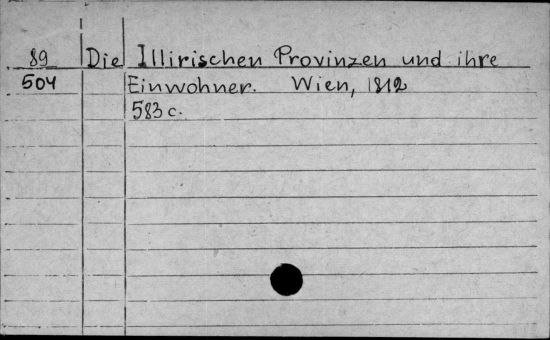 89 Die Illirischen Provinzen und ihre
504 Einwohner. Wien, 1812
583 c.